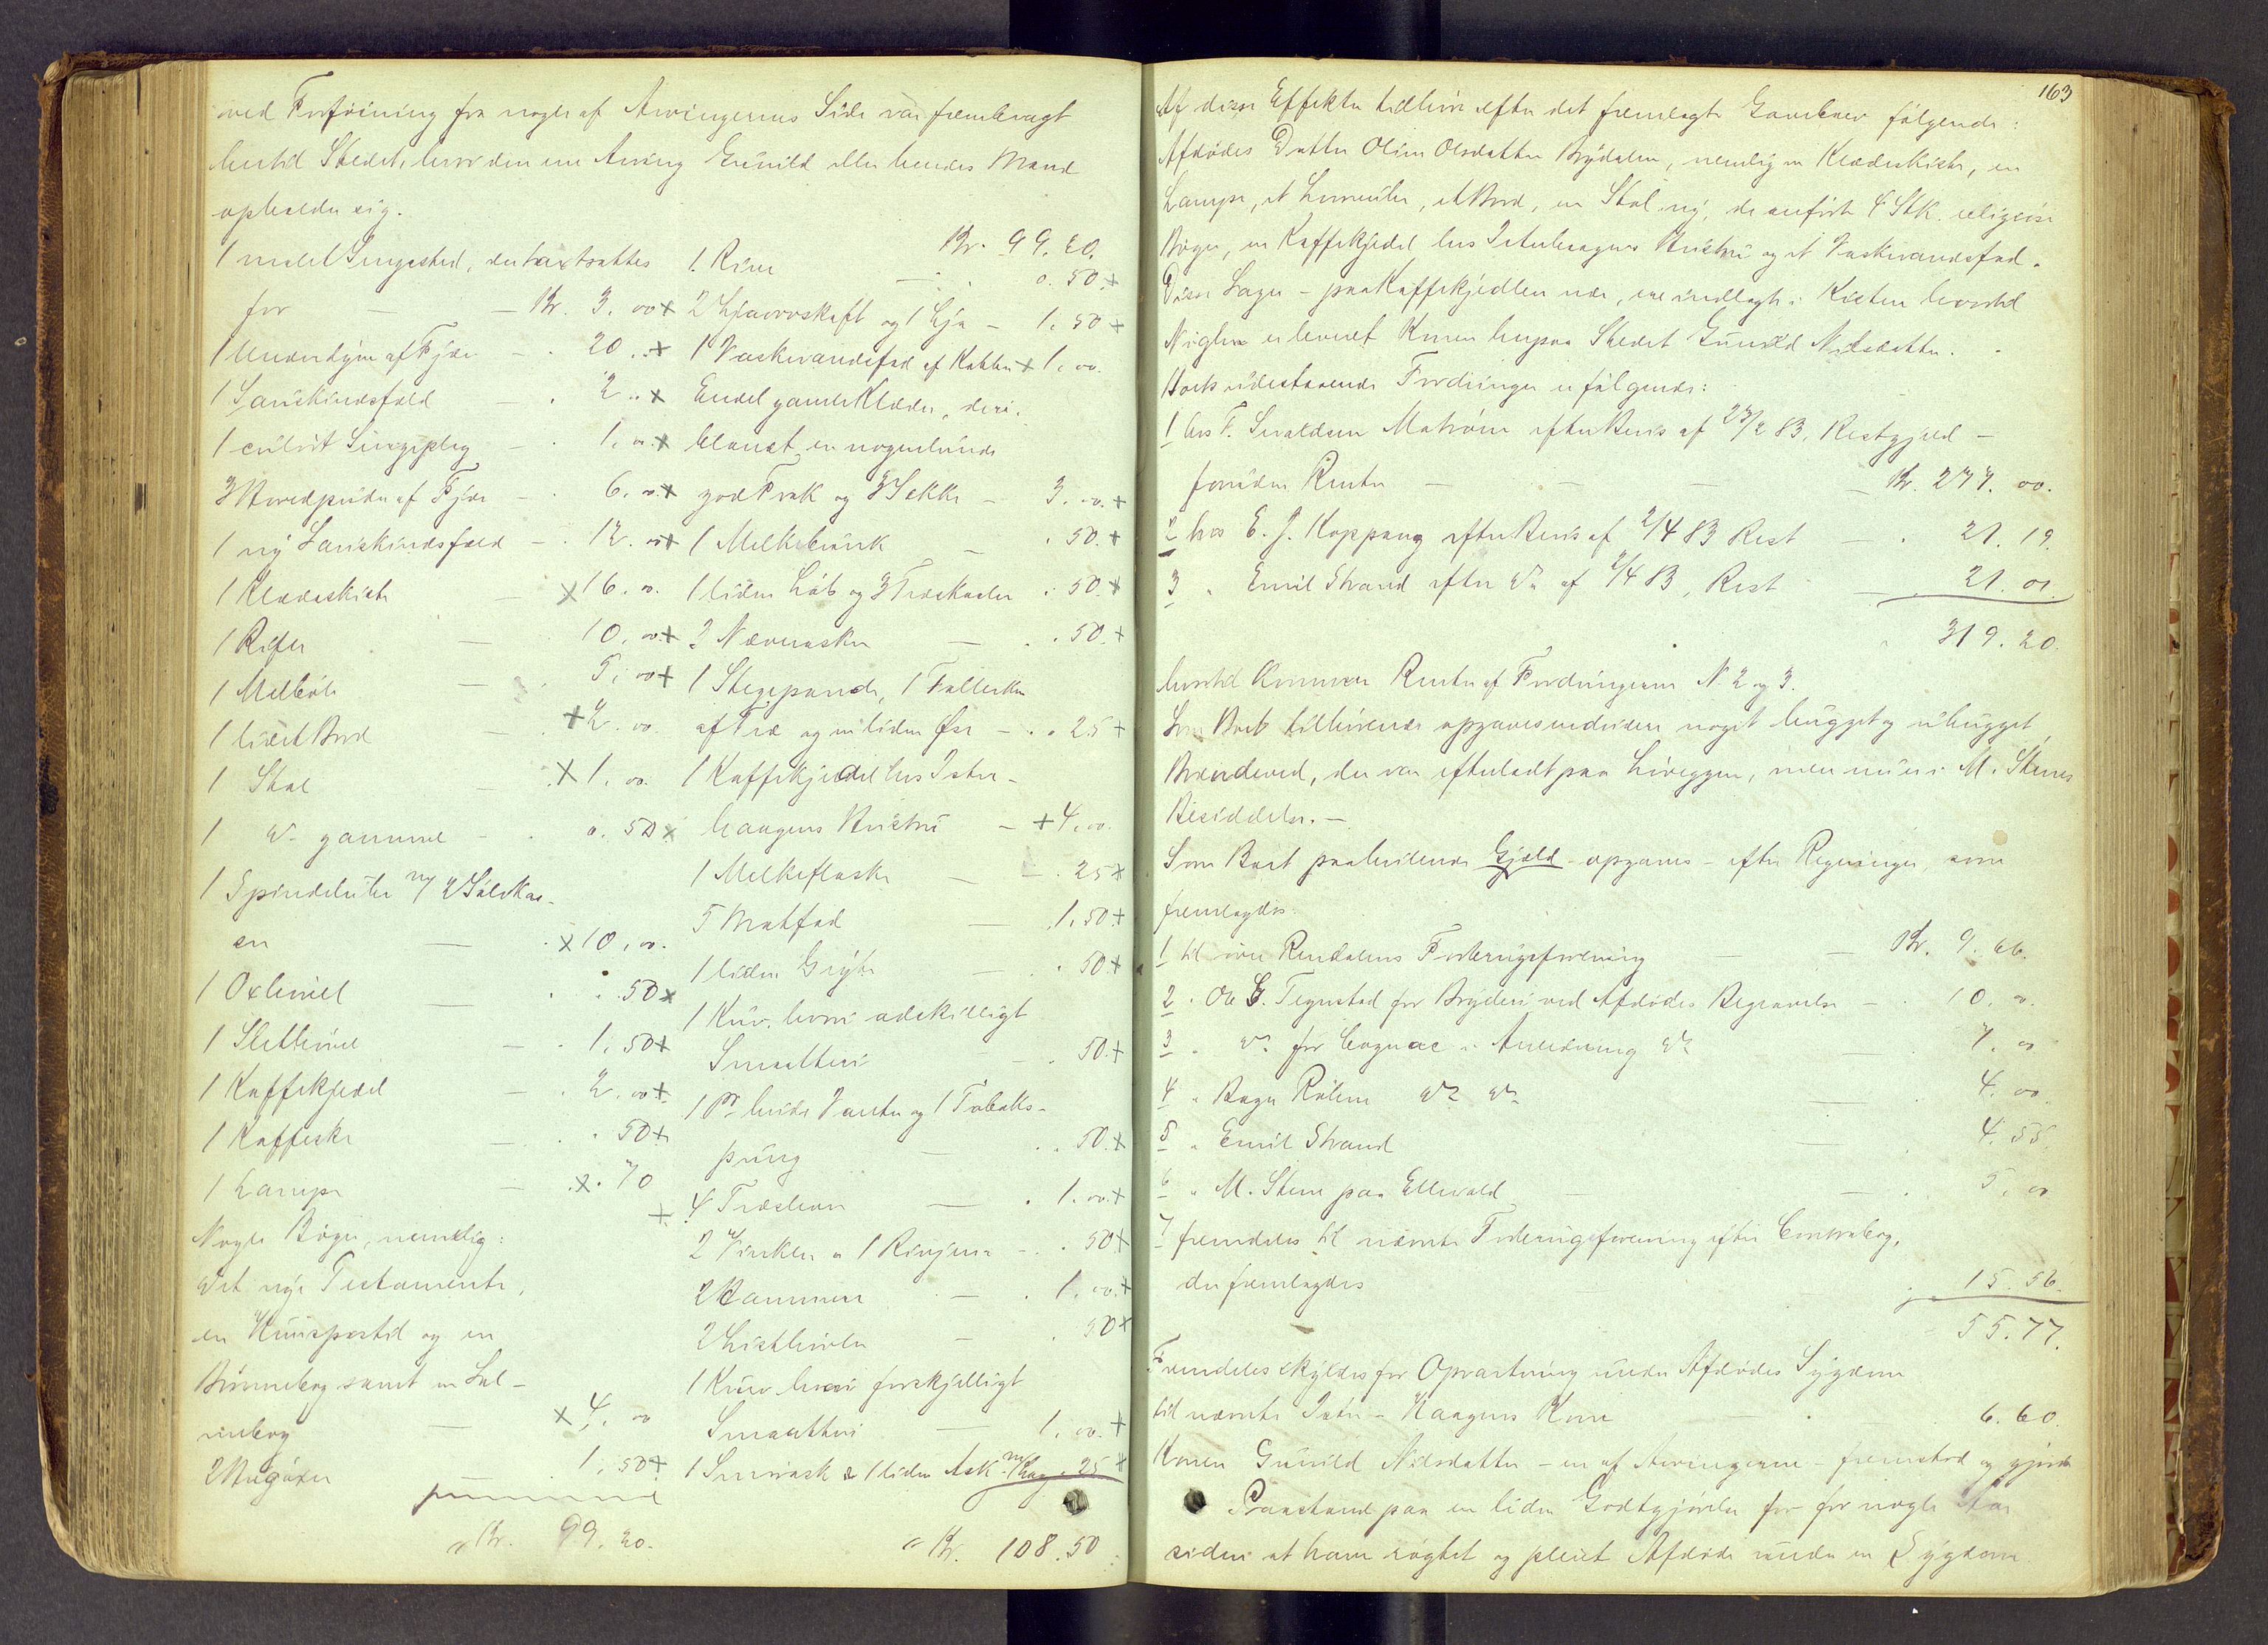 ved Forføining fra nogle af Arvingernes Side var frembragt
hertil Stedet, hvor den ene Arving Gunild eller hendes Mand
opholder sig.
1 malet Sengested, der taxtsattes
for — Kr. 3. 00 +
1 Underdyne af Fjær - 20 .. +
1 Saueskindsfæld - 2 .. x
1 ulvit Sengeplag - 1. 00. x
3 Hovedpuder af Fjær - 6. 00. x
1 ny Saueskindsfæld - 12. 00 +
1 Klædeskiste x 16. 00.
1 Rifle — 10. 00. +
1 Melbøle — 5. 00 +
1 lidet Bord + 2. 00.
1 Stol - x 1. 00.
1 do gammel - 0. 50 x
1 Spinderok m/ 2 Solvkar-
en — x 10. 00.
1 Oxhøvel — . 50 x
1 Sletthøvel - 1. 50 +
1 Kaffekjedel - 2. 00 +
1 Kaffeske — . 50 +
1 Lampe - x. 70
Nogle Bøger, nemlig:
det nye Testamente,
en Huuspostil og en
Bønnebog samt en Sal-
mebog — x 4. 00
2 Hugøxer — 1. 50 +
Kr. 99. 20.
Kr. 99. 20.
1. Rive — 0. 50. +
2 Ljaaorvskaft og 1 Ljaa - 1. 50 +
1 Vaskevandsfad af Kobber + 1. 00.
Endel gamle Klæder, deri-
blandt en nogenlunde
god Frak og 3 Sekke - 3. 00. +
1 Melkebunk — . 50. +
1 liden Løb og 3 Træskaaler . 50. +
2 Næverasker — . 50. +
1 Stegepande, 1 Tallerken
af Træ og en liden Øse - . . 25 +
1 Kaffekjedel hos Ister-
haagens Hustru — + 4. 00.
1 Melkeflaske — . 25 +
5 Matfad — 1. 50 +
1 liden Gryte — . 50. +
1 Kurv hvori adskilligt
Smaatteri - . 50. +
1 Pr hvide Vanter og 1 Tobaks-
pung — . . 50. +
+ 4 Træskeer — . 1. 00. +
2 Vinkler og 1 Rivjern - . 50 +
2 Hammere — . 1. 00. +
2 Listhøvler — . 50 +
1 Kurv hvori forskjelligt
Smaatteri — 1. 00. +
1 Smørask & 1 liden Ask m/ Laag . 25 +
" Kr. 108. 50.
163
Af disse Effekter tilhører efter det fremlagte Gavebrev følgende:
Afdødes Datter Oline Olsdatter Brydalen, nemlig en Klædeskiste, en
Lampe, et Lommeuhr, et Bord, en Stol ny, de anførte 4 Stk. religiøse
Bøger, en Kaffekjedel hos Isterhaagens Hustru og et Vaskevandsfad.
Disse Sager - paa Kaffekjedlen nær, ere indlagte i Kisten hvortil
Nøglen er leveret Konen her paa Stedet Gunild Nilsdatter.
Boets udestaaende Fordringer er følgende:
1 hos T. Sivaldsen Matrøen efter Bevis af 27/2 83, Restgjæld —
foruden Renter — — — Kr. 277. 00.
2 hos E. J. Koppang efter Bevis af 2/4 83 Rest — . 21. 19.
3 " Emil Strand efter do af 2/4 83, Rest — 21. 01.
319. 20.
hvortil kommer Renter af Fordringerne N. 2 og 3.
Som Boets tilhørende opgaves endvidere noget hugget og uhugget
Brændeved, der var efterladt paa Løveggen, men nu er i M. Stenes
Besiddelse. —
Som Boet paahvilende Gjæld opgaves - efter Regninger, som
fremlagdes.
1 til øvre Rendalens Forbrugsforening — — Kr. 9. 66.
2 . Ole G. Tegnstad for Bryderi ved Afdødes Begravelse — . 10. 00.
3 . do for Cognac i Anledning do — . 7. 00
4 . Bager Rølen do do — 4. 00.
5 . Emil Strand — 4. 55.
6 . M. Stene paa Ellevold — — . 5. 00
7 fremdeles til nævnte Forbrugsforening efter Contrabog,
der fremlagdes . 15. 56.
55. 77.
Fremdeles skyldes for Opvartning under Afdødes Sygdom
til nævnte Ister-Haagens Kone — . 6. 60.
Konen Gunild Nilsdatter - en af Arvingerne - fremstod og gjorde
Paastand paa en liden Godtgjørelse for for nogle Aar
siden at have røgtet og pleiet Afdøde under en Sygdom